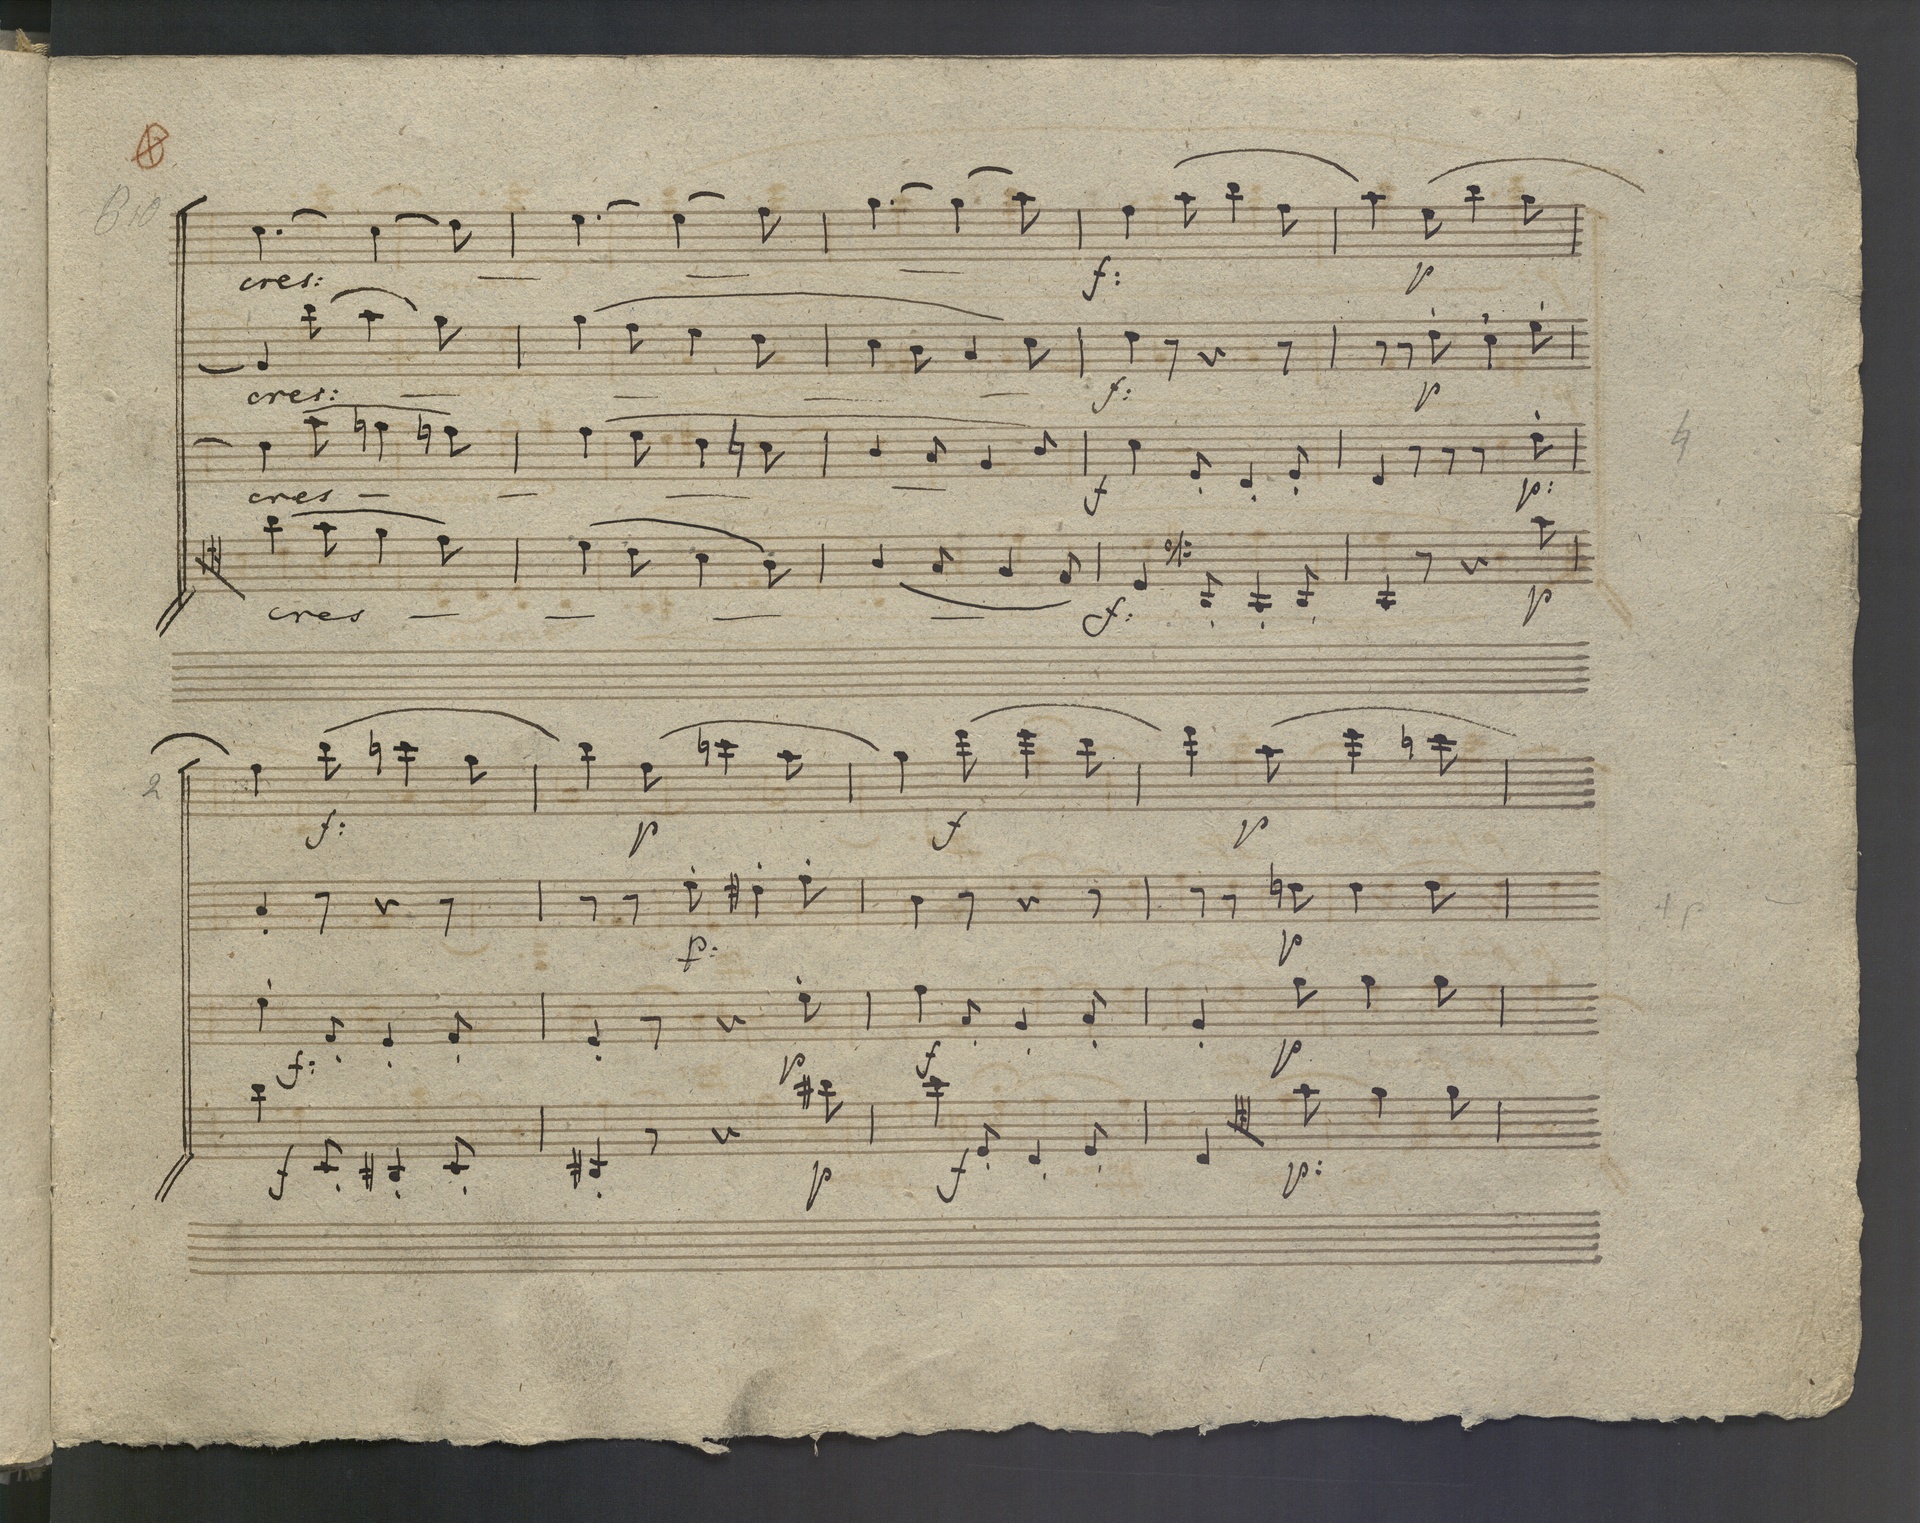 B 10
cres:
f: p
cres:
f: p
cres
f p:
cres
f: p
2
f: p f p
p: p
4 p
f: p f p
f p f p: